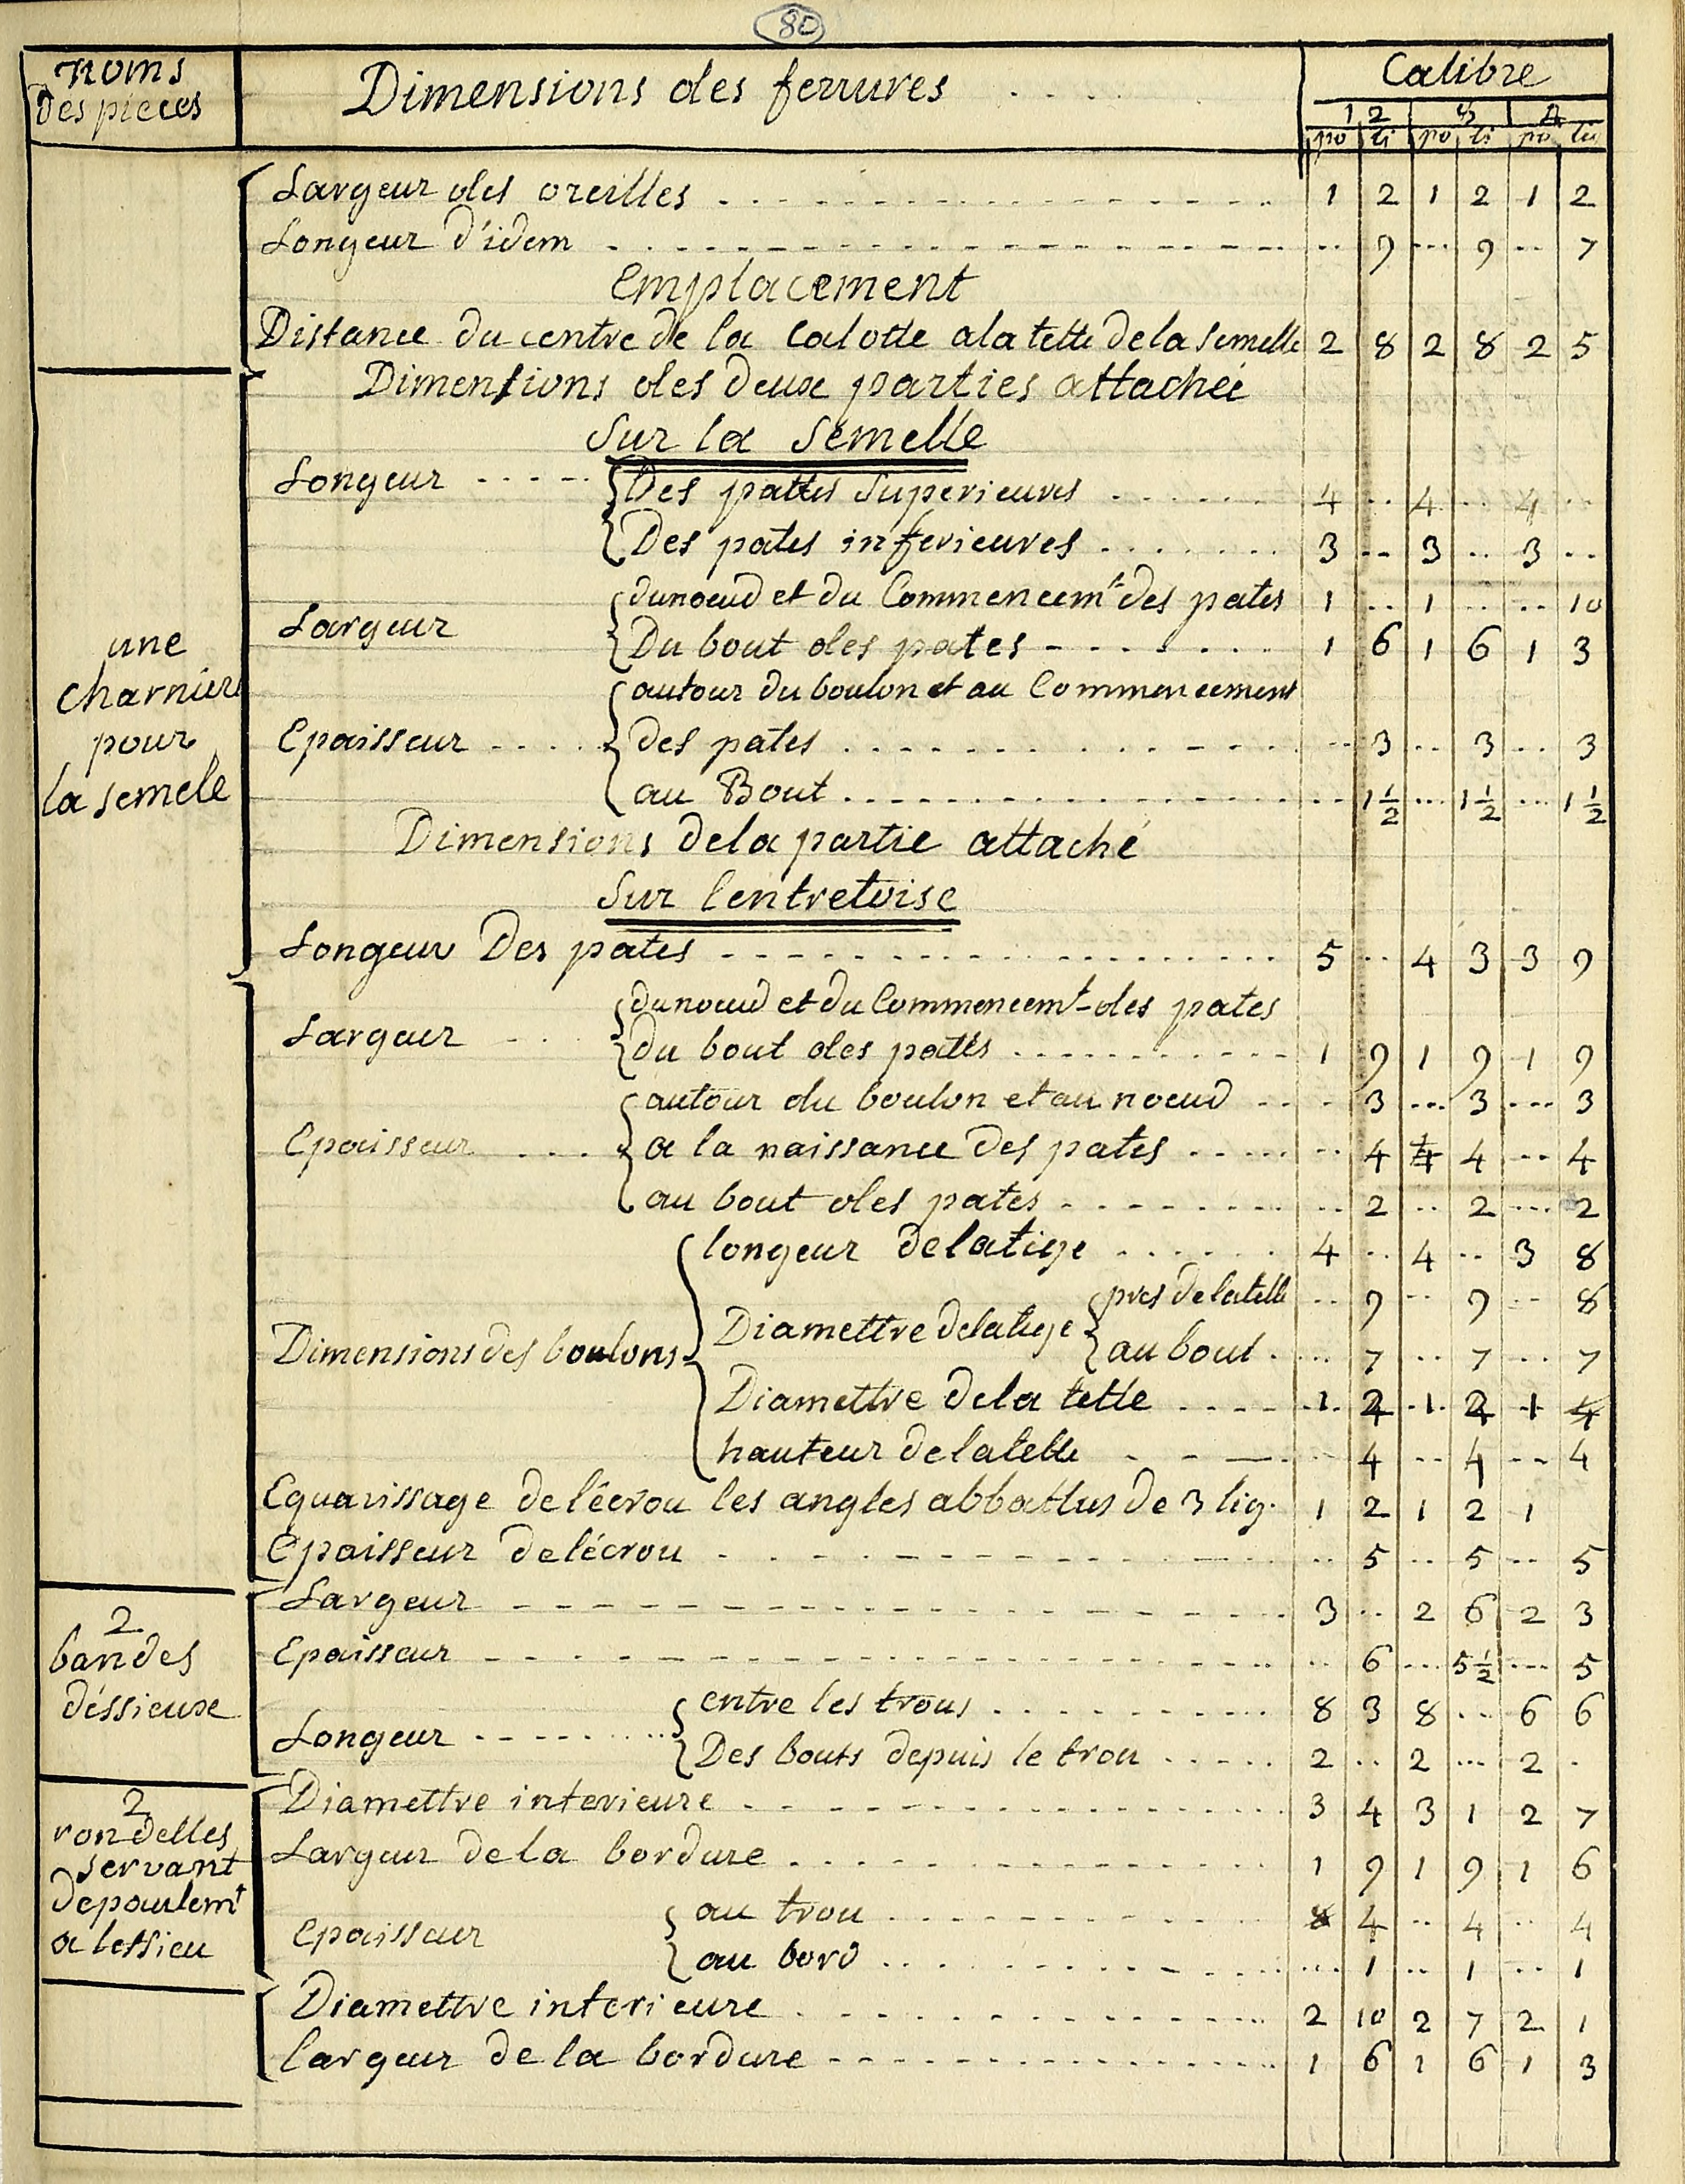 80
noms
Des pieces
Dimensions des ferrures . . . .
Calibre
12 8 4
po li po li po lii
Largeur des oreilles 1 2 1 2 1 2
Longeur d'idem .. 9 ... 9 .. 7
Emplacement
Distance du centre de la Calotte a la tette de la Semelle 2 8 2 8 2 5
Dimensions des Deux parties attachée
Sur la Semelle
Longeur Des pattes Superieures 4 .. 4 .. 4 ..
Des pates inferieures 3 .. 3 .. 3 ..
une
charniere
pour
la semele
Largeur
du noeud et du Commencemt Des pates 1 .. 1 .. .. 10
Du bout des pates 1 6 1 6 1 3
Epaisseur
autour du boulon et au Commencement
des pates .. 3 .. 3 .. 3
au Bout .. 1½ ... 1½ ... 1½
Dimensions de la partie attaché
Sur l'entretoise
Longeur Des pates 5 .. 4 3 3 9
Largeur
du noeud et du Commencemt des pates
du bout des pates 1 9 1 9 1 9
Epaisseur
autour du boulon et au noeud .. 3 ... 3 ... 3
a la naissance Des pates .. 4 4 .. 4
au bout des pates .. 2 .. 2 ... 2
Dimensions des boulons
longeur de la tige 4 .. 4 .. 3 8
Diamettre de la tige
pres de la tette .. 9 .. 9 .. 8
au bout ... 7 .. 7 .. 7
Diamettre de la tette 1 4 1 4 1 4
hauteur de la tette .. 4 .. 4 .. 4
Equarissage de l'écrou les angles abbattus De 3 lig. 1 2 1 2 1
Epaisseur de l'écrou .. 5 .. 5 .. 5
2
bandes
déssieuxe
Largeur 3 .. 2 6 2 3
Epaisseur .. 6 ... 5½ ... 5
Longeur
entre les trous 8 3 8 .. 6 6
Des bouts depuis le trou 2 .. 2 ... 2 .
2
rondelles
servant
depaulemt
a lessieu
Diamettre interieure 3 4 3 1 2 7
Largeur de la bordure 1 9 1 9 1 6
Epaisseur
au trou 4 .. 4 .. 4
au bord ... 1 .. 1 .. 1
Diamettre interieure 2 10 2 7 2 1
largeur de la bordure 1 6 1 6 1 3